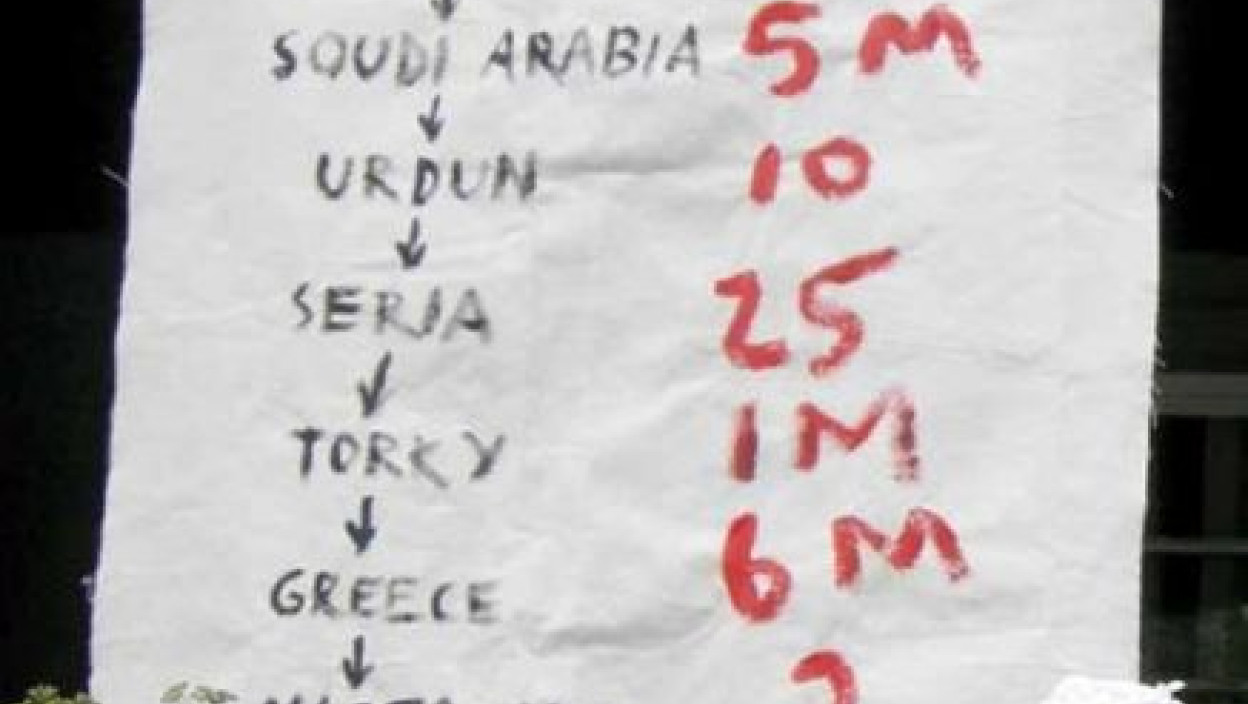 SOUDI ARABIA 5M
URDUN 10
SERIA 25
TORKY 1M
GREECE 6M